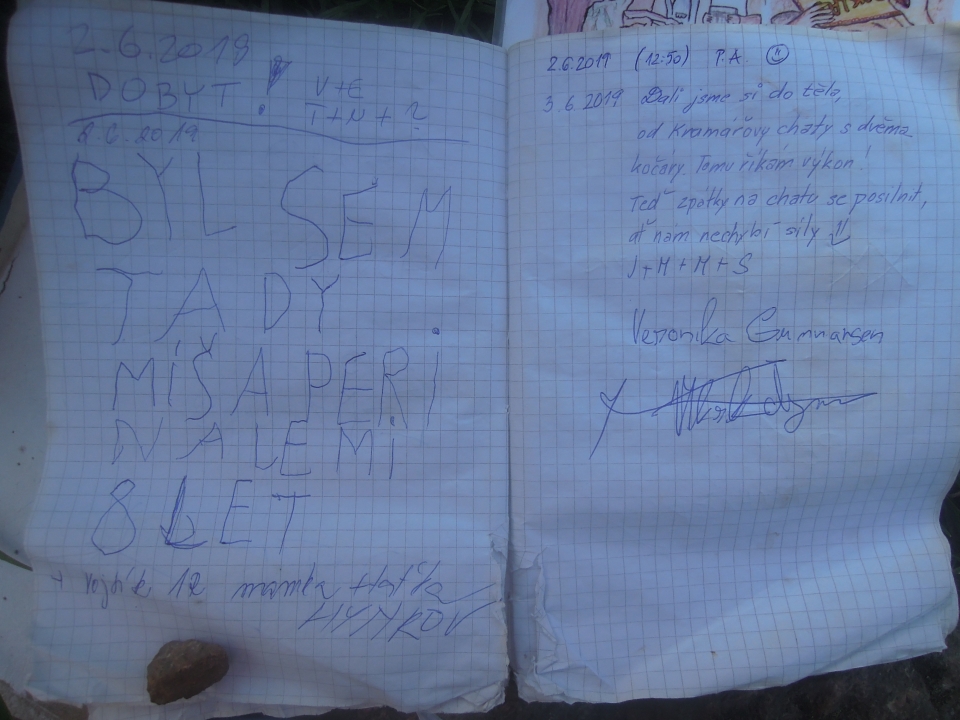 2.6.2019
DOBYT! V+E
T+N+?
2019
BYL SEM
TADY
MÍŠA PERI
NALEMI
8 LET
+ Vojtík 12 mamka +taťka
HYNKOV
2.6.2019 (12:50) P.A. ☺
3.6.2019 Dali jsme si do těla,
od Kramářovy chaty s dvěma
kočáry. Tomu říkám výkon!
Teď zpátky na chatu se posilnit,
ať nám nechybí síly
J+M+M+S
Veronika Gunnarsen